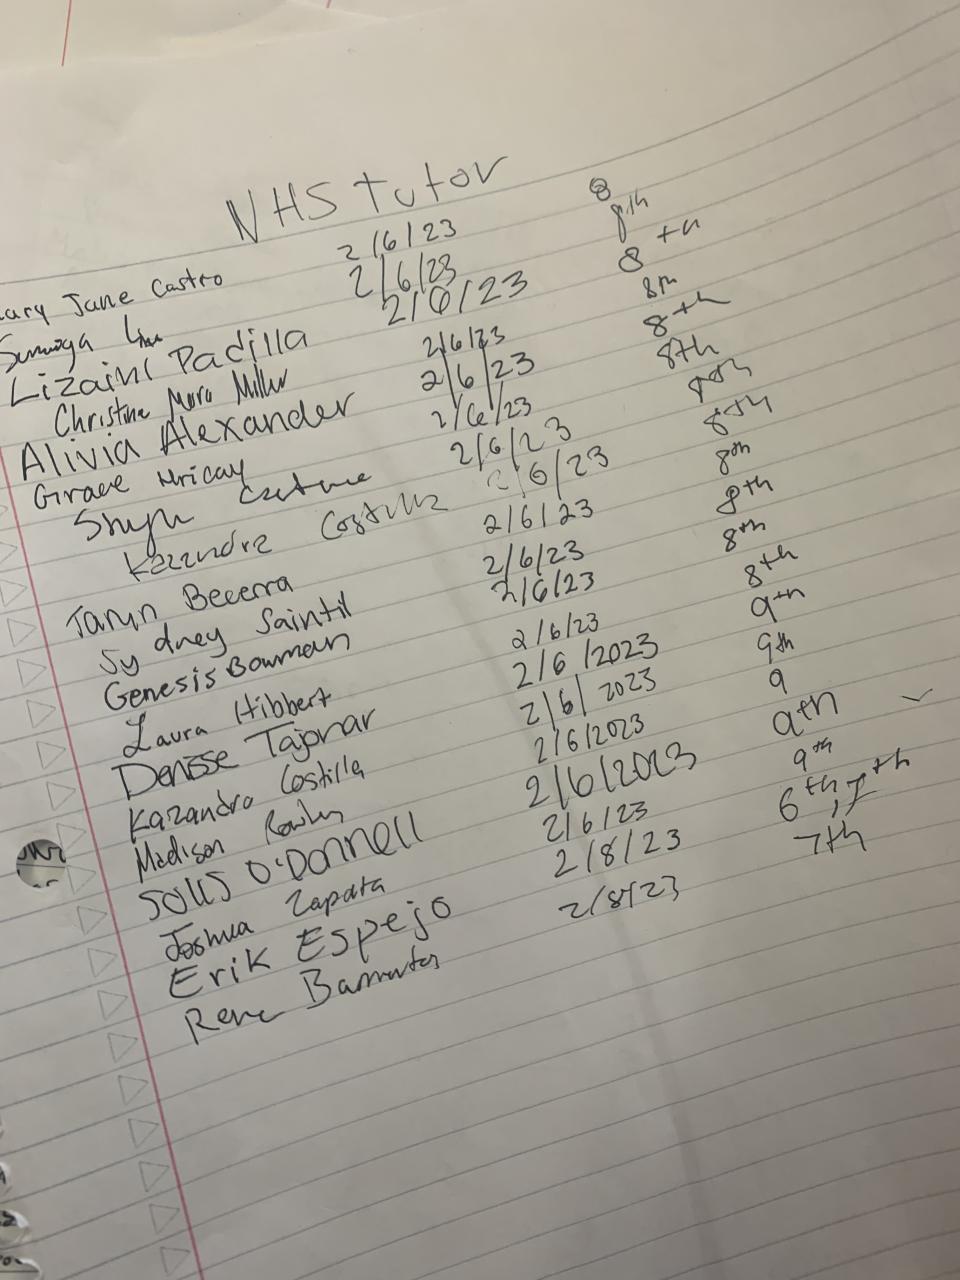 NHS Tutor
ary Jane Castro 2/6/23 8
2/6/23 8th
Lizainl Padilla 2/6/23 8th
Christina Mora Miller 2/6/23 8th
Alivia Alexander 2/6/23 8th
Grace 2/6/23 8th
2/6/23 8th
Kazandra Costilla 2/6/23 8th
Tarun Becerra 2/6/23 8th
Sydney Saintil 2/6/23 8th
Genesis Bowman 2/6/23 8th
Laura Hibbert 2/6/23 8th
Denisse Tajonar 2/6/2023 9th
Kazandra Costilla 2/6/2023 9th
Madison Rowley 2/6/2023 9
O'Donnell 2/6/2023 9th
Joshua Zapata 2/6/23 9th
Erik Espejo 2/8/23 6th, th
Rene 2/8/23 7th